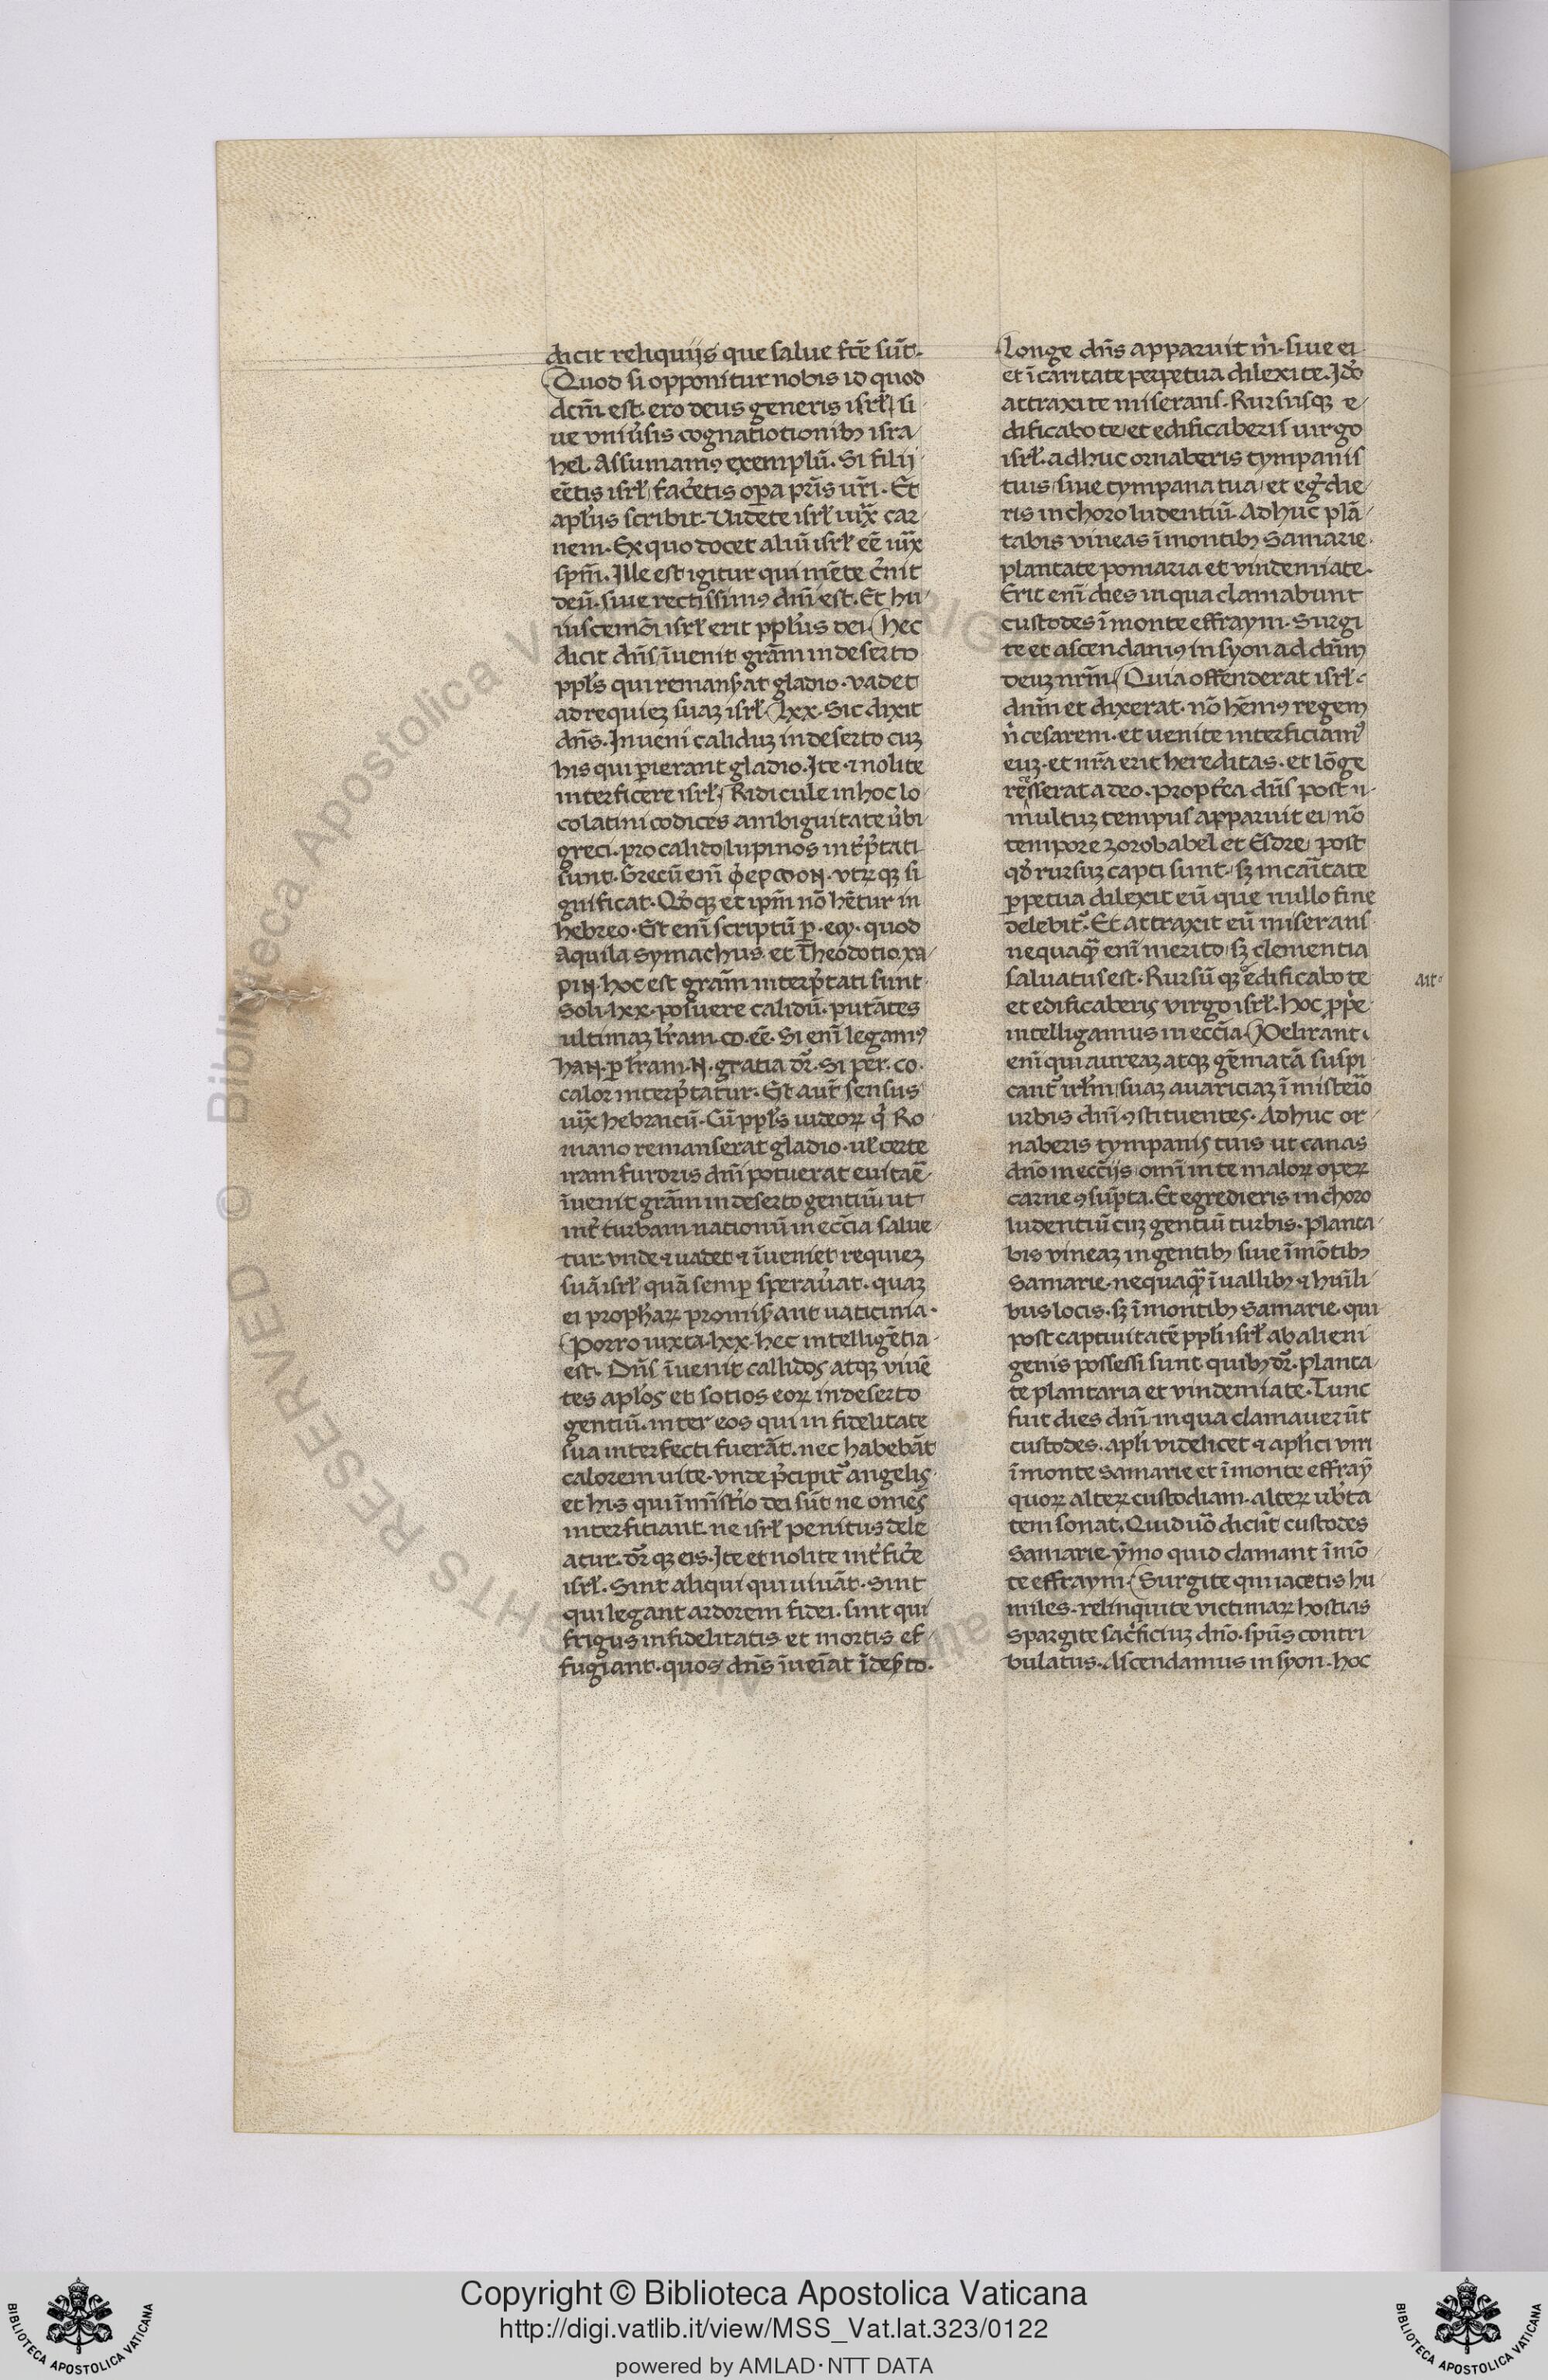 dicit reliquijs que salue fcē sūt.
Quod si opponitur nobis id quod
dcm̄ est. ero deus generis isrl̄ si
ue vniu̓sis cognatiotionib3 isra
hel. Assumamꝰ exemplū. Si filij
eētis isrl̄ fac̓etis oꝑa pr̄is ur̄i. Et
apl̄us scribit. Videte isrl̄ iux̄ car
nem. Ex quo docet aliū isrl̄ eē iux̄
spm̄. Ille est igitur qui mēte c̓nit
deū. siue rectissimꝰ dn̄i est. Et hu
iuscemōi isrl̄ erit ppl̄us dei. hec
dicit dn̄s īuenit grām in deserto
ppl̄s qui remans̓at gladio. vadet
ad requiez suaz isrl̄. lxx. Sic dixit
dn̄s. Inueni caliduz in deserto cuz
his qui ꝑierant gladio. Ite ⁊ nolite
interficere isrl̄. Ridicule in hoc lo
co latini codices ambiguitate u̓bi
greci. pro calido lupinos int̓p̓tati
sunt. Grecū enī ϕερμον. vtrꝝqꝫ si
gnificat. Qd̓qꝫ et ipm̄ nō hētur in
hebreo. Est enī scriptū ꝑ. quod
Aquila Symachus et Theodotio χα
ριν. hoc est grām interp̓tati sunt
Soli. lxx. posuere calidū. putātes
ultimaz lr̄am. eē. Si enī legamꝰ
han. ꝑ lr̄am. N. gratia dr̄. Si per.
calor interp̓tatur. Est aut̄ sensus
iux̄ hebraicū. Cū ppl̄s iudeoꝝ q̓ Ro
mano remanserat gladio. ul̄ certe
iram furoris dn̄i potuerat euitaē
īuenit grām in deserto gentiū ut
int̓ turbam nationū in ecc̄ia salue
tur. vnde ⁊ uadet ⁊ īueniet requiez
suā isrl̄ quā semꝑ sperau̓at. quaz
ei prophaꝝ promis̓ant uaticinia.
Porro iuxta. lxx. hec intelligētia
est. Dn̄s īuenit callidos atqꝫ viuē
tes apl̄os et sotios eoꝝ in deserto
gentiū. inter eos qui in fidelitate
sua interfecti fuerāt. nec habebāt
calorem uite. vnde p̓cipit᷑ angelis
et his qui ī mīst̓io dei sūt ne omēs
interfitiant. ne isrl̄ penitus dele
atur. dr̄ qꝫ eis. Ite et nolite int̓fic̓e
isrl̄. Sint aliqui qui uiuāt. Sint
qui legant ardorem fidei. sint qui
frigus infidelitatis et mortis ef
fugiant. quos dn̄s īueīat ī des̓to.
Longe dn̄s apparuit m̓. siue ei
et ī caritate perpetua dilexi te. Idō
attraxi te miserans. Rursusqꝫ e
dificabo te et edificaberis uirgo
isrl̄. adhuc ornaberis tympanis
tuis siue tympana tua et eg̓die
ris in choro ludentiū. Adhuc plā
tabis vineas ī montib3 Samarie.
plantate pomaria et vindemiate.
Erit enī dies in qua clamabunt
custodes ī monte effraym. Surgi
te et ascendamꝰ in syon ad dūm
deuz nrm̄. Quia offenderat isrl̄
dnm̄ et dixerat. nō hēmꝰ regem
n̓ cesarem. et uenite interficiamꝰ
euz. et nr̄a erit hereditas. et lōge
rec̓sserat a deo. propt̓ea dn̄s post
multuz tempus apparuit ei nō
tempore zorobabel et Esdre post
qd̓ rursuz capti sunt. sꝫ in caritate
ꝑpetua dilexit eū que nullo fine
delebit᷑. Et attraxit eū miserans
nequaqꝫ enī merito sꝫ clementia
saluatus est. Rursūqꝫ edificabo te
ait
et edificaberis virgo isrl̄. hoc ꝓp̓e
intelligamus in ecc̄ia. Delirant
enī qui aureaz atqꝫ gēmatā suspi
cant᷑ irl̄m suaz auariciaz ī mist̄io
urbis dn̄i ꝯstituentes. Adhuc or
naberis tympanis tuis ut canas
dn̄o in ecc̄ijs omī in te maloꝝ opeꝝ
carne ꝯsūpta. Et egredieris in choro
ludentiū cuz gentiū turbis. planta
bis vineaz in gentib3 siue ī mōtib3
Samarie. nequaqꝫ ī uallib3 ⁊ hūili
bus locis. sꝫ ī montib3 Samarie. qui
post captiuitatē ppl̄i isrl̄ ab alieni
genis possessi sunt. quib3 dr̄. planta
te plantaria et vindemiate. Tunc
fuit dies dn̄i in qua clamauerūt
custodes. apl̄i videlicet ⁊ apl̄ici viri
ī monte Samarie et ī monte effraȳ
quoꝝ alteꝝ custodiam. alteꝝ ub̓ta
tem sonat. Quid uō dicūt custodes
Samarie. ymo quid clamant ī mō
te effraym. Surgite qui iacetis hu
miles. relinquite victimaꝝ hostias
Spargite sac̓ficiuz dn̄o. sp̄us contri
bulatus. Ascendamus in syon. hoc
Copyright © Biblioteca Apostolica Vaticana
http://digi.vatlib.it/view/MSS_Vat.lat.323/0122
powered by AMLAD·NTT DATA
BIBLIOTECA APOSTOLICA VATICANA
BIBLIOTECA APOSTOLICA VATICANA